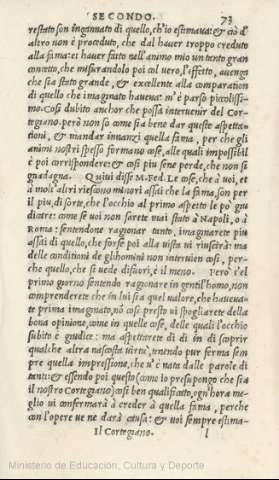 SECONDO. 73
restato son ingannato di quello, ch'io estimaua: & ciò d'
altro non è proceduto, che dal hauer troppo creduto
alla fama: et hauer fatto nell'animo mio un tanto gran
concetto, che misurandolo poi col vero, l'effetto, auenga
che sia stato grande, & excellente alla comparation
di quello che imaginato haueua: m'è parso piccolissi-
mo. Cosi dubito anchor che possa intervenir del Cor-
tegiano. però non so come sia bene dar queste aspetta-
tioni, & mandar innanzi quella fama, per che gli
animi nostri spesso formano cose, alle quali impossibil
è poi corrispondere: & cosi piu sene perde, che non si
guadagna. Quiui disse M. Fed. Le cose, che à uoi, et
à molt'altri riescono minori assai che la fama, son per
il piu, di sorte, che l'occhio al primo aspetto le po' giu
dicare: come se uoi non sarete mai stato à Napoli, o à
Roma: sentendone ragionar tanto, imaginarete piu
assai di quello, che forse poi alla uista ui riuscirà: ma
delle conditioni de glihomini non interuien cosi, per-
che quello, che si uede difuori, è il meno. Però s'el
primo giorno sentendo ragionare un gentil'homo, non
comprenderete che in lui sia quel valore, che haueua-
te prima imaginato, nō cosi presto ui spogliarete della
bona opinione, come in quelle cose, delle quali l'occhio
subito è giudice: ma aspettarete di dì in dì scoprir
qualche altra nascosta uirtù, tenendo pur ferma sem
pre quella impressione, che u'è nata dalle parole di
tanti: & essendo poi questo (come io presupongo che sia
il nostro Cortegiano) cosi ben qualificato, ogn'hora me-
glio ui confermarà à creder à quella fama, perche
con l'opere ue ne darà causa: & uoi sempre estima-
Il Cortegiano. l
Ministerio de Educación, Cultura y Deporte